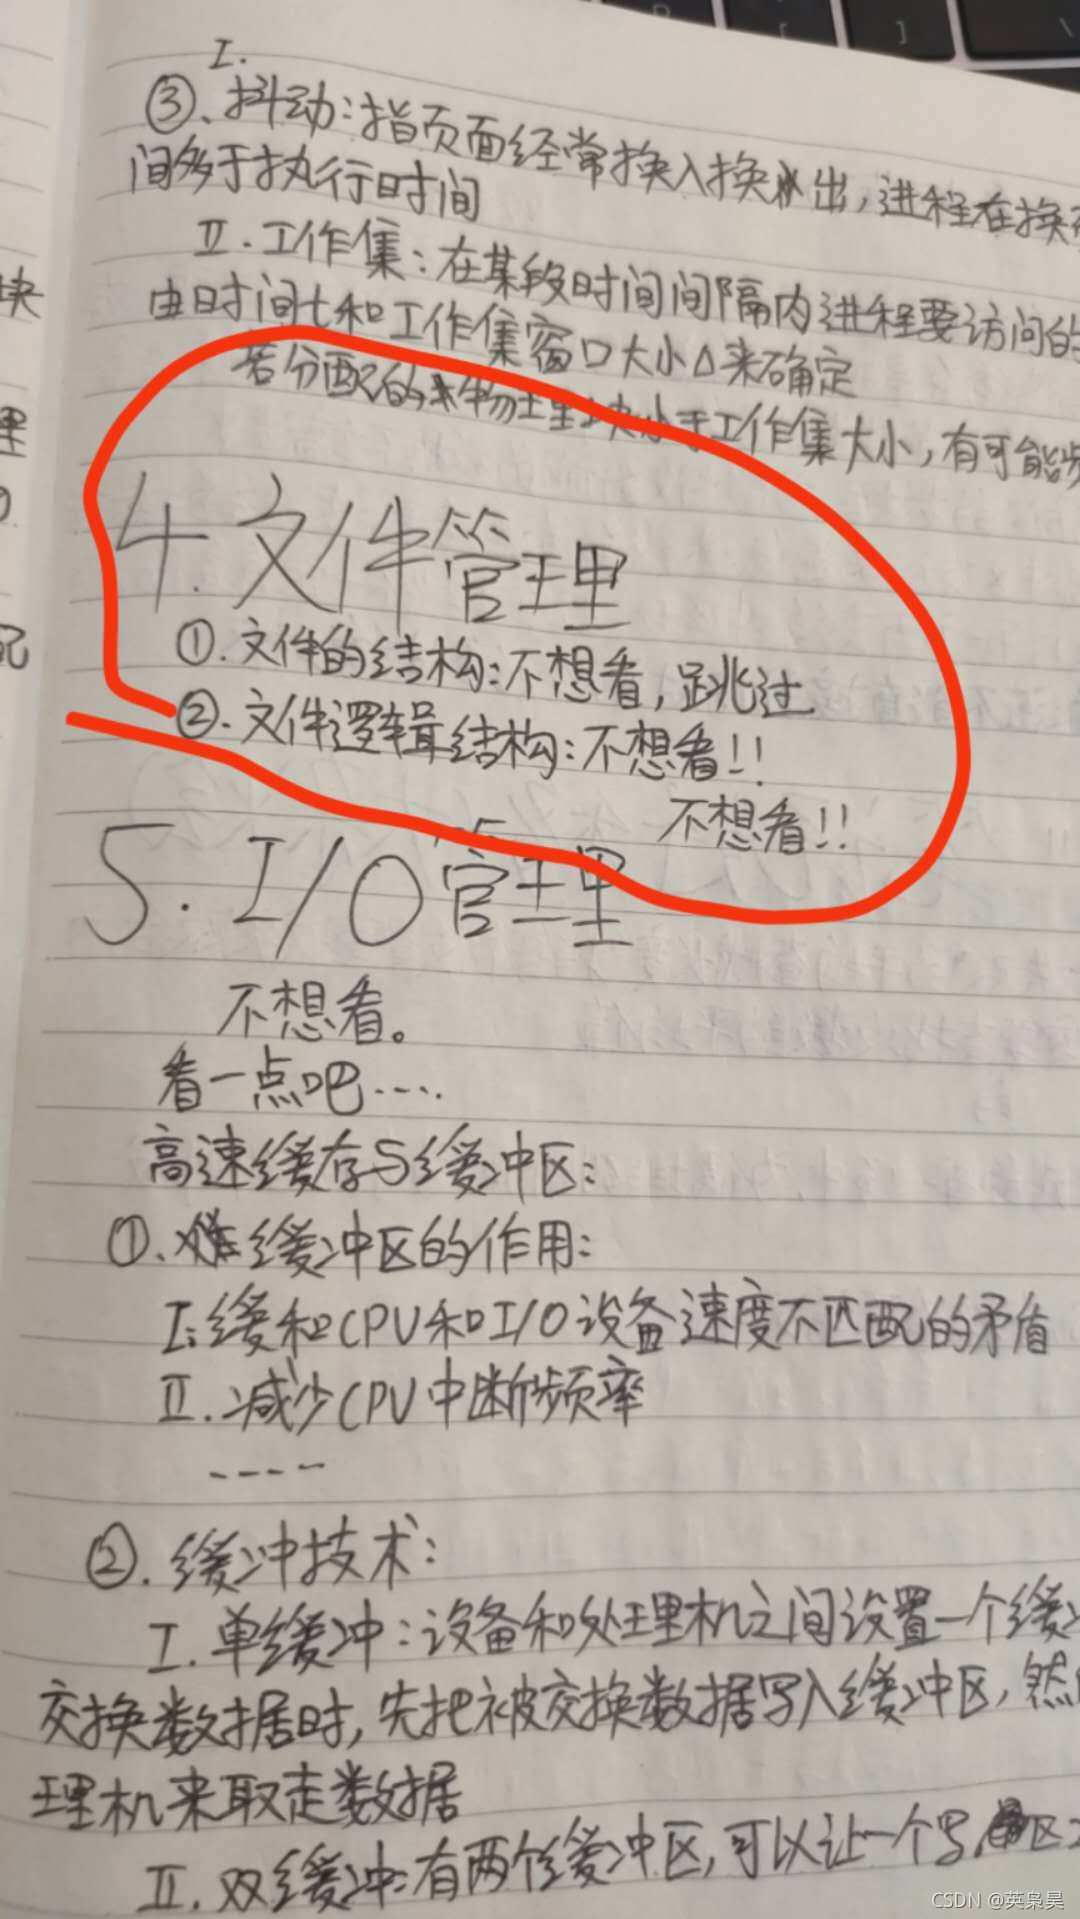 I.
③、抖动：指页面经常换入换出，进程在换
间多于执行时间
II.工作集：在某段时间间隔内进程要访问的
由时间t和工作集窗口大小Δ来确定
若分配的物理块小于工作集大小，有可能
4.文件管理
①.文件的结构：不想看，跳过
②.文件逻辑结构：不想看！！
不想看！！
5.I/O管理
不想看。
看一点吧....
高速缓存与缓冲区：
①.缓冲区的作用：
I:缓和CPU和I/O设备速度不匹配的矛盾
II.减少CPU中断频率
-----
②.缓冲技术：
I.单缓冲：设备和处理机之间设置一个缓
交换数据时，先把被交换数据写入缓冲区，然
理机来取走数据
II.双缓冲：有两个缓冲区，可以让一个写，区
CSDN @英枭昊